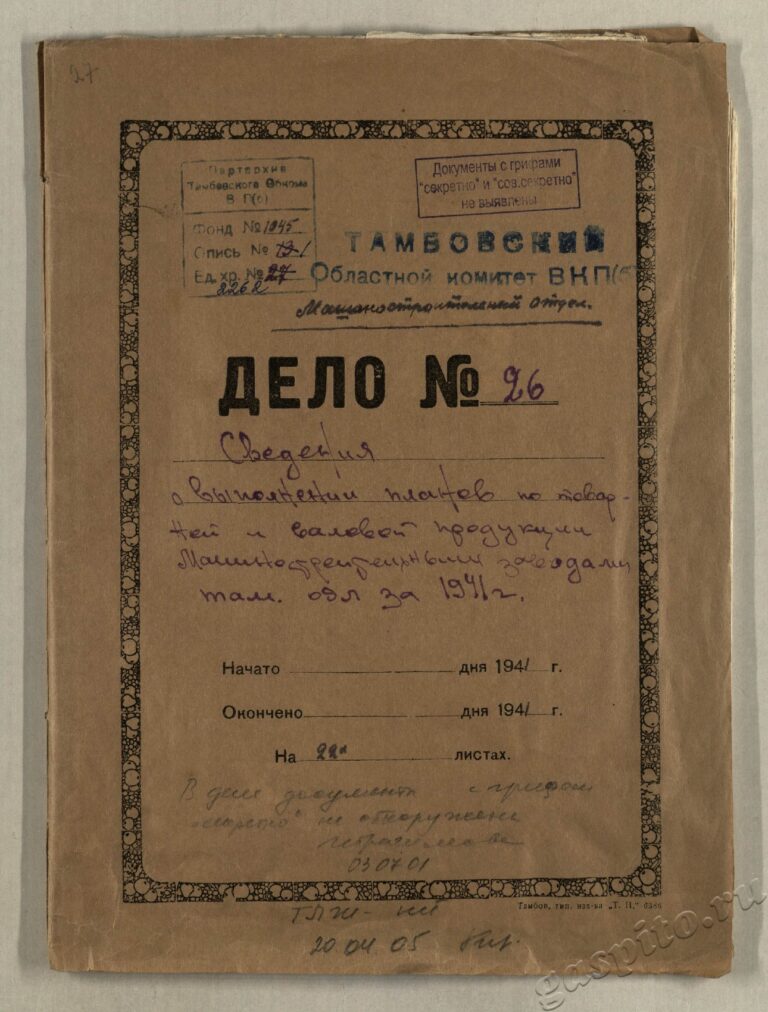 27
Партархив
Тамбовского Обкома
В П(б)
Фонд № 1045
Опись № 19 1
Ед. хр. № 27
2262
Документы с грифами
"секретно" и "сов.секретно"
не выявлены
ТАМБОВСКИЙ
Областной комитет ВКП(б)
Машиностроительный отдел.
ДЕЛО № 26
Сведения
о выполнении планов по товар-
ной и валовой продукции
Машиностроительными заводами
там. обл за 1941 г.
Начато дня 1941 г.
Окончено дня 1941 г.
На листах.
В деле документы с грифом
не обнаружены
03 07 01
20 04 05
Тамбов, тип. изд-ва „Т. П."
gaspito.ru